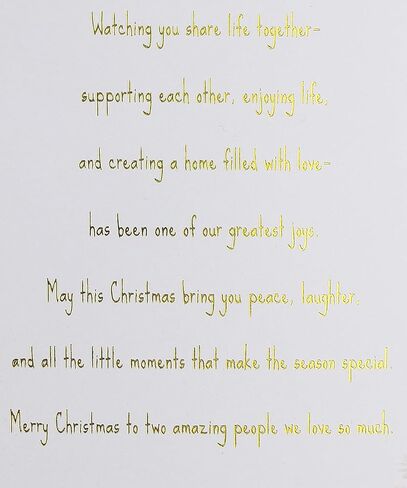 Watching you share life together-
supporting each other, enjoying life,
and creating a home filled with love-
has been one of our greatest joys.
May this Christmas bring you peace, laughter,
and all the little moments that make the season special.
Merry Christmas to two amazing people we love so much.